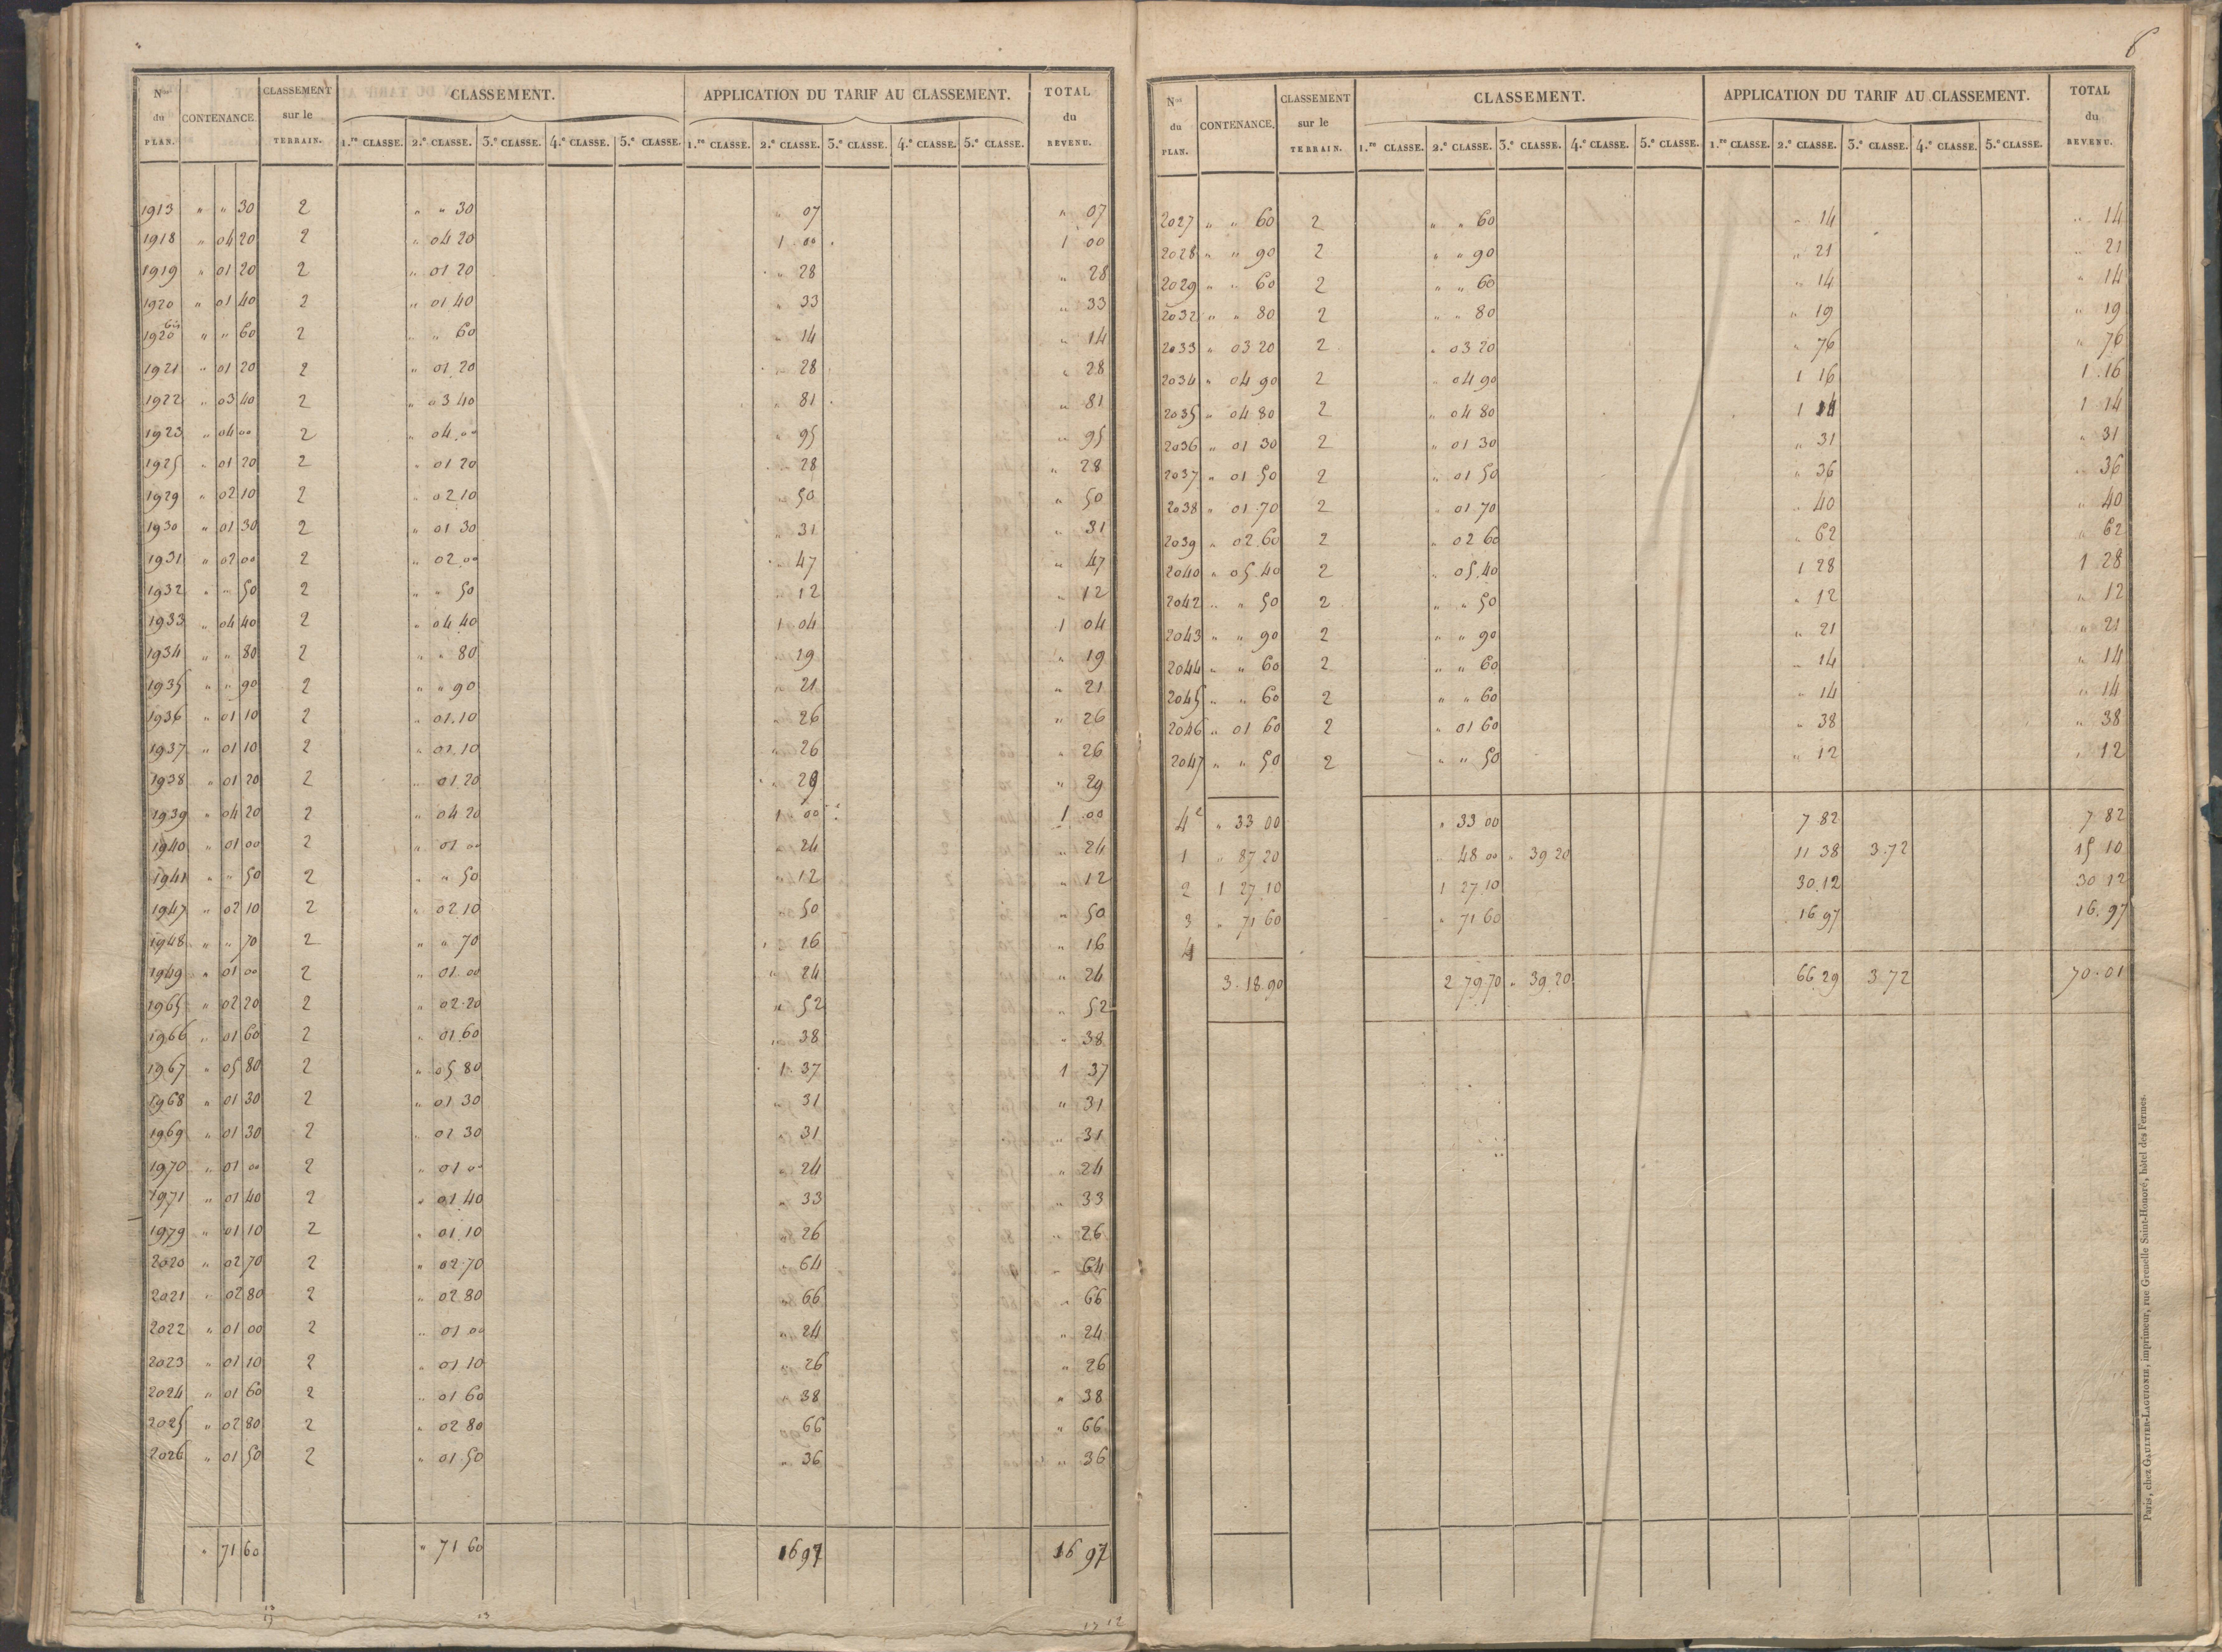 N.os du PLAN. CONTENANCE. CLASSEMENT sur le TERRAIN. CLASSEMENT. APPLICATION DU TARIF AU CLASSEMENT. TOTAL du REVENU.
1.re CLASSE. 2.e CLASSE. 3.e CLASSE. 4.e CLASSE. 5.e CLASSE. 1.re CLASSE. 2.e CLASSE. 3.e CLASSE. 4.e CLASSE. 5.e CLASSE.
1913 " " 30 2 " " 30 " 07 " 07
1918 " 04 20 2 " 04 20 1 00 1 00
1919 " 01 20 2 " 01 20 " 28 " 28
1920 " 01 40 2 " 01 40 " 33 " 33
1920 bis " " 60 2 " " 60 " 14 " 14
1921 " 01 20 2 " 01 20 " 28 " 28
1922 " 03 40 2 " 03 40 " 81 " 81
1923 " 04 00 2 " 04 00 " 95 " 95
1925 " 01 20 2 " 01 20 " 28 " 28
1929 " 02 10 2 " 02 10 " 50 " 50
1930 " 01 30 2 " 01 30 " 31 " 31
1931 " 02 00 2 " 02 00 " 47 " 47
1932 " " 50 2 " " 50 " 12 " 12
1933 " 04 40 2 " 04 40 1 04 1 04
1934 " " 80 2 " " 80 " 19 " 19
1935 " " 90 2 " " 90 " 21 " 21
1936 " 01 10 2 " 01 10 " 26 " 26
1937 " 01 10 2 " 01 10 " 26 " 26
1938 " 01 20 2 " 01 20 " 29 " 29
1939 " 04 20 2 " 04 20 1 00 1 00
1940 " 01 00 2 " 01 00 " 24 " 24
1941 " " 50 2 " " 50 " 12 " 12
1947 " 02 10 2 " 02 10 " 50 " 50
1948 " " 70 2 " " 70 " 16 " 16
1949 " 01 00 2 " 01 00 " 24 " 24
1965 " 02 20 2 " 02 20 " 52 " 52
1966 " 01 60 2 " 01 60 " 38 " 38
1967 " 05 80 2 " 05 80 1 37 1 37
1968 " 01 30 2 " 01 30 " 31 " 31
1969 " 01 30 2 " 01 30 " 31 " 31
1970 " 01 00 2 " 01 00 " 24 " 24
1971 " 01 40 2 " 01 40 " 33 " 33
1979 " 01 10 2 " 01 10 " 26 " 26
2020 " 02 70 2 " 02 70 " 64 " 64
2021 " 02 80 2 " 02 80 " 66 " 66
2022 " 01 00 2 " 01 00 " 24 " 24
2023 " 01 10 2 " 01 10 " 26 " 26
2024 " 01 60 2 " 01 60 " 38 " 38
2025 " 02 80 2 " 02 80 " 66 " 66
2026 " 01 50 2 " 01 50 " 36 " 36
" 71 60 " 71 60 16 97 16 97
6
N.os du PLAN. CONTENANCE. CLASSEMENT sur le TERRAIN. CLASSEMENT. APPLICATION DU TARIF AU CLASSEMENT. TOTAL du REVENU.
1.re CLASSE. 2.e CLASSE. 3.e CLASSE. 4.e CLASSE. 5.e CLASSE. 1.re CLASSE. 2.e CLASSE. 3.e CLASSE. 4.e CLASSE. 5.e CLASSE.
2027 " " 60 2 " " 60 " 14 " 14
2028 " " 90 2 " " 90 " 21 " 21
2029 " " 60 2 " " 60 " 14 " 14
2032 " " 80 2 " " 80 " 19 " 19
2033 " 03 20 2 " 03 20 " 76 " 76
2034 " 04 90 2 " 04 90 1 16 1 16
2035 " 04 80 2 " 04 80 1 14 1 14
2036 " 01 30 2 " 01 30 " 31 " 31
2037 " 01 50 2 " 01 50 " 36 " 36
2038 " 01 70 2 " 01 70 " 40 " 40
2039 " 02 60 2 " 02 60 " 62 " 62
2040 " 05 40 2 " 05 40 1 28 1 28
2042 " " 50 2 " " 50 " 12 " 12
2043 " " 90 2 " " 90 " 21 " 21
2044 " " 60 2 " " 60 " 14 " 14
2045 " " 60 2 " " 60 " 14 " 14
2046 " 01 60 2 " 01 60 " 38 " 38
2047 " " 50 2 " " 50 " 12 " 12
4e " 33 00 " 33 00 7 82 7 82
1 " 87 20 " 48 00 " 39 20 11 38 3.72 15 10
2 1 27 10 1 27 10 30.12 30 12
3 " 71 60 " 71 60 16 97 16.97
4
3.18.90 2 79.70 " 39.20 66.29 3.72 70.01
Paris, chez GAULTIER-LAGUIONIE, imprimeur, rue Grenelle Saint-Honoré, hôtel des Fermes.